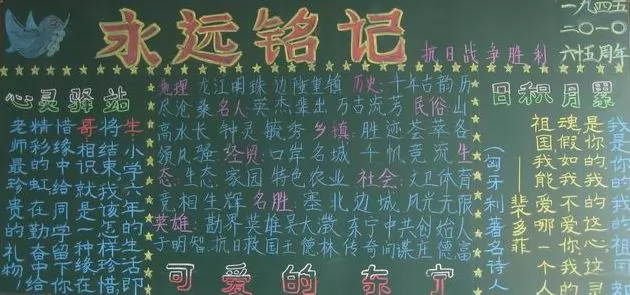 永远铭记
抗日战争胜利
一九四五
二〇一〇
六十五周年
心灵驿站
生小学六年的生活即
将结束我该怎样珍惜
哥相识就是一种缘在
惜缘中给同学留下你
精彩的虹在勤奋中给
老师最珍贵的礼物!
地理:龙江明珠边陲重镇历史:千年古韵历
尽沧桑名人:英杰辈出万古流芳民俗:山
高水长钟灵毓秀乡镇:胜迹荟萃各
领风骚:经贸:口岸名城千帆竞流生
态:生态家园特色农业社会:文卫体育
竞相生辉名胜:塞北边城风光无限
英雄:勘界英雄吴大澂东宁中共创始人
于明智抗日救国王德林传奇间谍庄德富
可爱的东宁
日积月累
我是你的我的祖国都
是你的我的这心这灵
魂假如我不爱你我的
祖国我能爱哪一个人
——裴多菲
(匈牙利著名诗人)